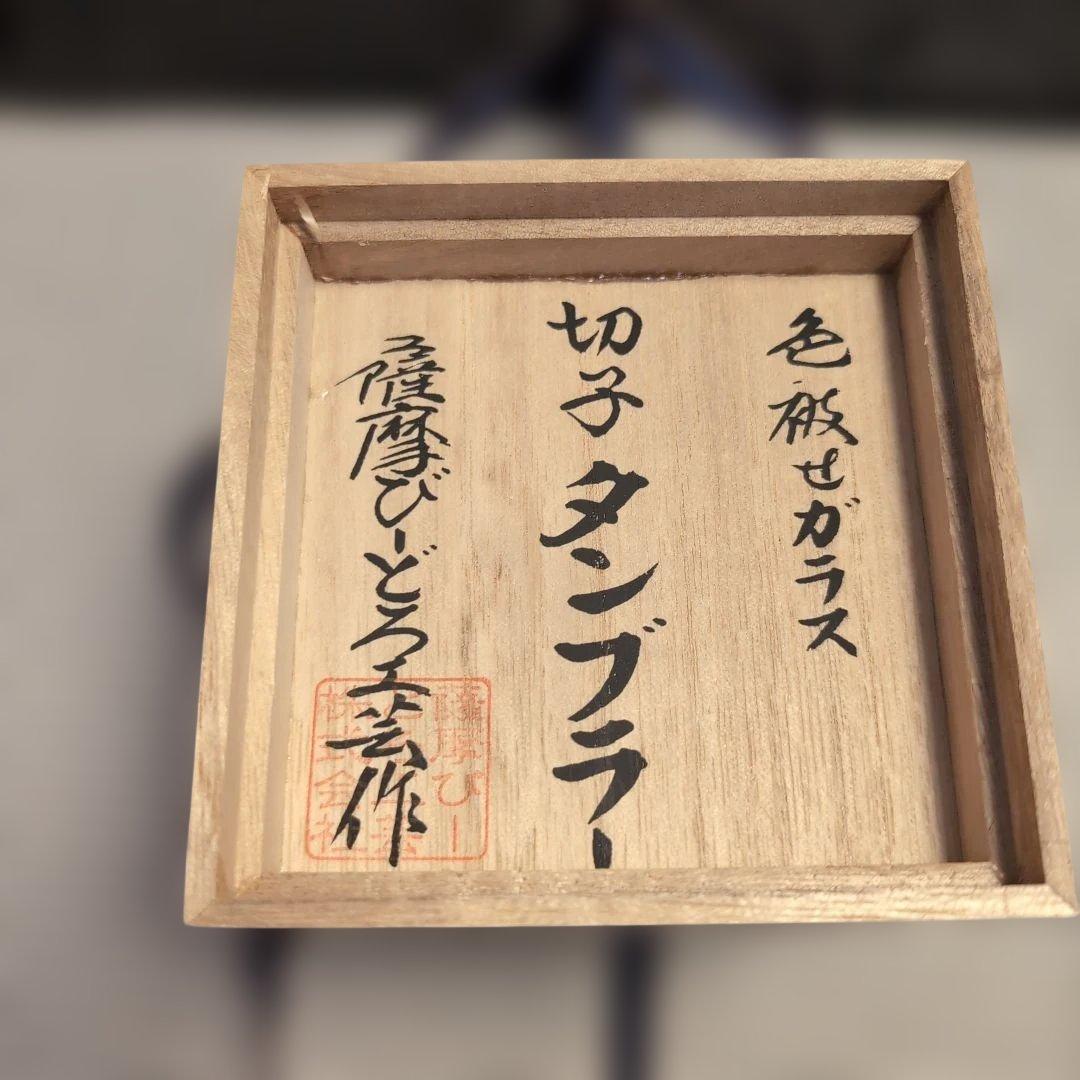 色被せガラス
切子タンブラー
薩摩びーどろ工芸作
薩摩びー
株式会社